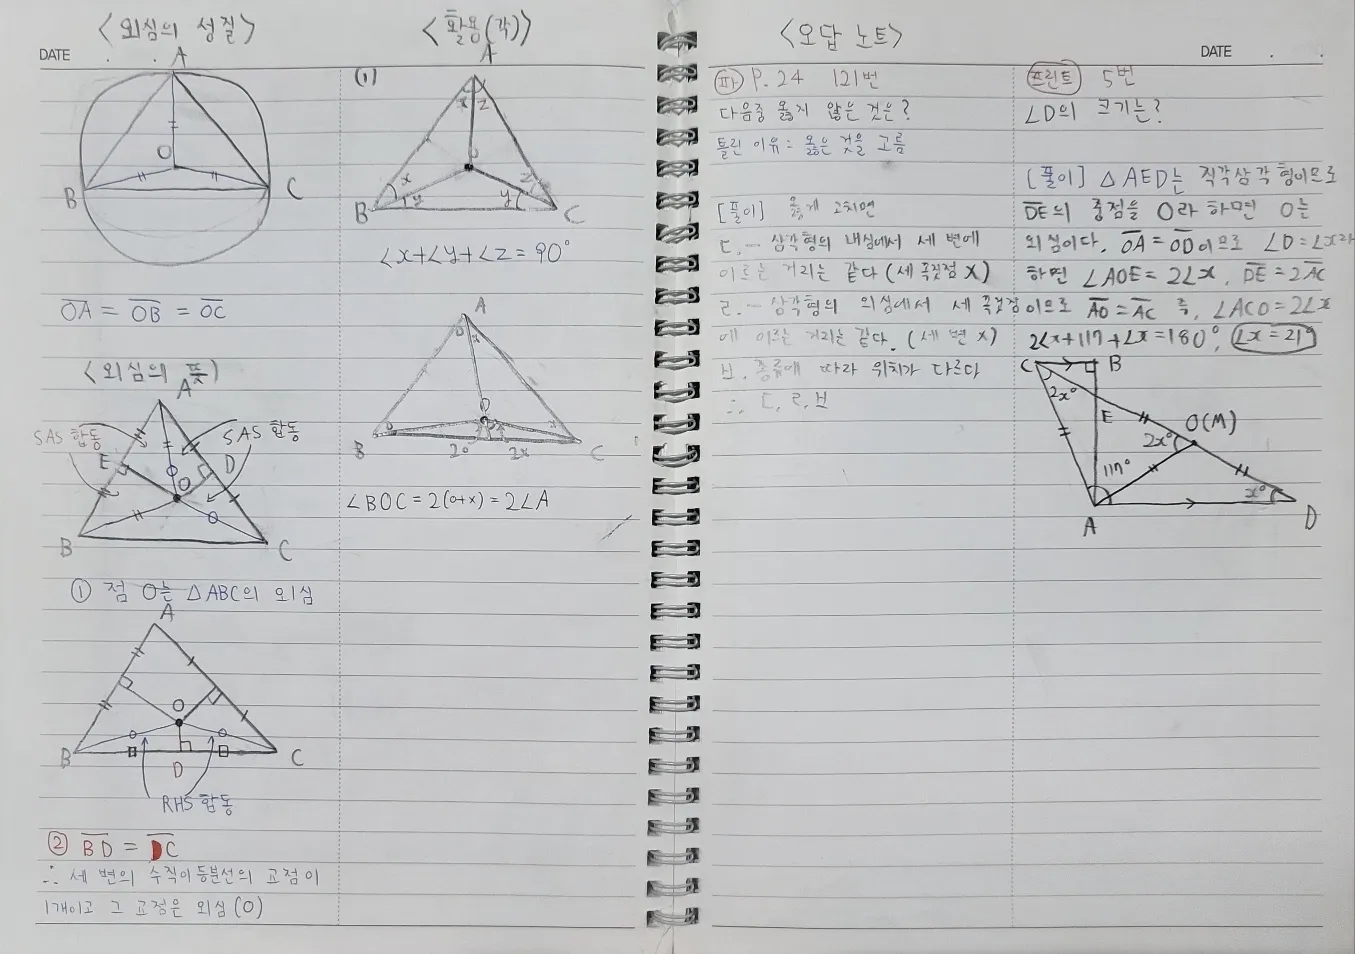 <외심의 성질>
DATE . .
A
O
B
C
OA = OB = OC
<외심의 뜻>
A
SAS 합동
SAS 합동
E
D
O
B
C
① 점 O는 △ABC의 외심
A
O
B
C
D
RHS 합동
② BD = DC
∴ 세 변의 수직이등분선의 교점이
1개이고 그 교점은 외심(O)
<활용(각)>
(1)
A
x z
x
z
B
y
y
C
∠x+∠y+∠z=90°
A
o x
O
o
x
B
2o
2x
C
∠BOC = 2(o+x) = 2∠A
<오답 노트>
파 P. 24 121번
다음중 옳지 않은 것은?
틀린 이유: 옳은 것을 고름
[풀이] 옳게 고치면
ㄷ. → 삼각형의 내심에서 세 변에
이르는 거리는 같다 (세 꼭짓점 X)
ㄹ. → 삼각형의 외심에서 세 꼭짓점
에 이르는 거리는 같다. (세 변 x)
ㅂ. 종류에 따라 위치가 다르다
∴ ㄷ, ㄹ, ㅂ
DATE . .
프린트 5번
∠D의 크기는?
[풀이] △AED는 직각삼각형이므로
DE의 중점을 O라 하면 O는
외심이다. OA = OD이므로 ∠D=∠x라
하면 ∠AOE = 2∠x, DE = 2AC
이므로 AO = AC 즉, ∠ACO=2∠x
2∠x+117+∠x=180°, ∠x=21°
C
B
2x°
E
O(M)
2x°
117°
x°
A
D